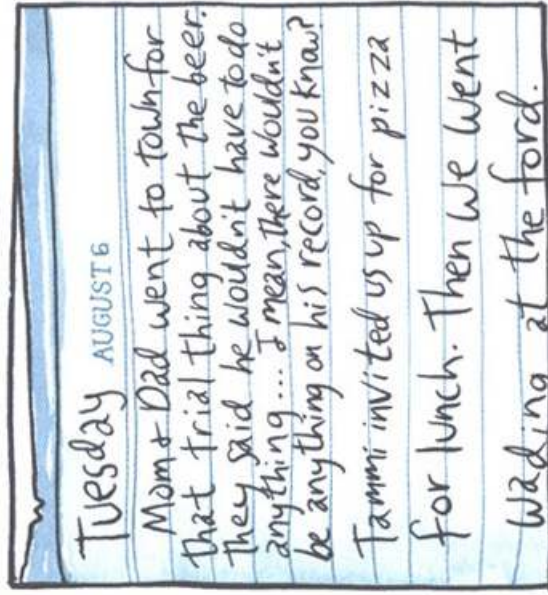 Tuesday AUGUST 6
Mom & Dad went to town for
that trial thing about the beer.
they said he wouldn't have to do
anything... I mean, there wouldn't
be anything on his record, you know?
Tammi invited us up for pizza
for lunch. Then we went
wading at the ford.